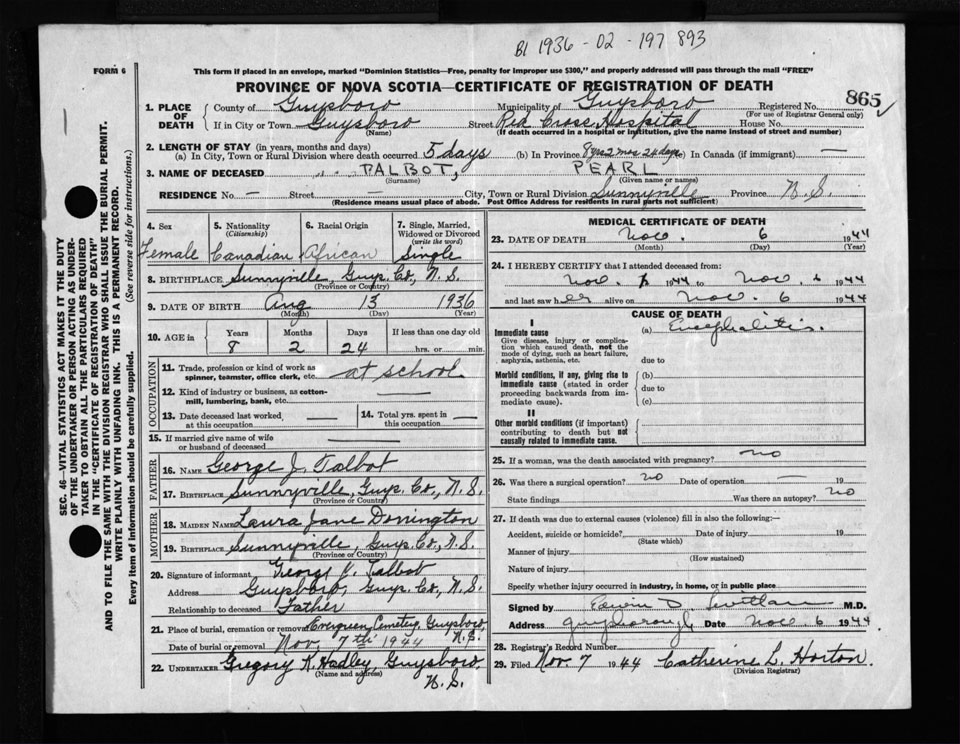 B1 1936 - 02 - 197 893
FORM 6
This form if placed in an envelope, marked "Dominion Statistics—Free, penalty for improper use $300," and properly addressed will pass through the mail "FREE"
PROVINCE OF NOVA SCOTIA—CERTIFICATE OF REGISTRATION OF DEATH
1. PLACE OF DEATH County of Guysboro Municipality of Guysboro Registered No. 865
(For use of Registrar General only)
If in City or Town Guysboro Street Red Cross Hospital House No.
(Name) (If death occurred in a hospital or institution, give the name instead of street and number)
2. LENGTH OF STAY (in years, months and days)
(a) In City, Town or Rural Division where death occurred 5 days (b) In Province 8 yrs 2 mos 24 days In Canada (if immigrant) —
3. NAME OF DECEASED TALBOT, PEARL
(Surname) (Given name or names)
RESIDENCE No. — Street — City, Town or Rural Division Sunnyville Province N.S.
(Residence means usual place of abode. Post Office Address for residents in rural parts not sufficient)
4. Sex 5. Nationality (Citizenship) 6. Racial Origin 7. Single, Married, Widowed or Divorced (write the word)
Female Canadian African Single
8. BIRTHPLACE Sunnyville, Guys. Co., N.S.
(Province or Country)
9. DATE OF BIRTH Aug 13 1936
(Month) (Day) (Year)
10. AGE in Years Months Days If less than one day old
8 2 24 hrs. or min.
OCCUPATION
11. Trade, profession or kind of work as spinner, teamster, office clerk, etc. at school
12. Kind of industry or business, as cotton-mill, lumbering, bank, etc. —
13. Date deceased last worked at this occupation — 14. Total yrs. spent in this occupation —
15. If married give name of wife or husband of deceased —
FATHER
16. NAME George J. Talbot
17. BIRTHPLACE Sunnyville, Guys. Co., N.S.
(Province or Country)
MOTHER
18. MAIDEN NAME Laura Jane Donington
19. BIRTHPLACE Sunnyville, Guys. Co., N.S.
(Province or Country)
20. Signature of informant George J. Talbot
Address Guysboro, Guys. Co., N.S.
Relationship to deceased Father
21. Place of burial, cremation or removal Evergreen Cemetery, Guysboro, N.S.
Date of burial or removal Nov. 7th 1944
22. UNDERTAKER Gregory R. Hadley, Guysboro, N.S.
(Name and address)
MEDICAL CERTIFICATE OF DEATH
23. DATE OF DEATH Nov. 6 1944
(Month) (Day) (Year)
24. I HEREBY CERTIFY that I attended deceased from:
Nov. 1944 to Nov. 6 1944
and last saw her alive on Nov. 6 1944
CAUSE OF DEATH
I
Immediate cause (a) Encephalitis.
Give disease, injury or complication which caused death, not the mode of dying, such as heart failure, asphyxia, asthenia, etc.
due to
Morbid conditions, if any, giving rise to immediate cause (stated in order proceeding backwards from immediate cause).
(b)
due to
(c)
II
Other morbid conditions (if important) contributing to death but not causally related to immediate cause.
25. If a woman, was the death associated with pregnancy? no
26. Was there a surgical operation? no Date of operation — 19
State findings Was there an autopsy? no
27. If death was due to external causes (violence) fill in also the following:—
Accident, suicide or homicide? Date of injury 19
(State which)
Manner of injury
(How sustained)
Nature of injury
Specify whether injury occurred in industry, in home, or in public place
Signed by M.D.
Address Guysborough Date Nov. 6 1944
28. Registrar's Record Number
29. Filed Nov. 7 1944 Catherine L. Horton.
(Division Registrar)
SEC. 46—VITAL STATISTICS ACT MAKES IT THE DUTY
OF THE UNDERTAKER OR PERSON ACTING AS UNDER-
TAKER TO OBTAIN ALL THE PARTICULARS REQUIRED
IN THE "CERTIFICATE OF REGISTRATION OF DEATH"
AND TO FILE THE SAME WITH THE DIVISION REGISTRAR WHO SHALL ISSUE THE BURIAL PERMIT.
WRITE PLAINLY WITH UNFADING INK. THIS IS A PERMANENT RECORD.
Every item of information should be carefully supplied. (See reverse side for instructions.)